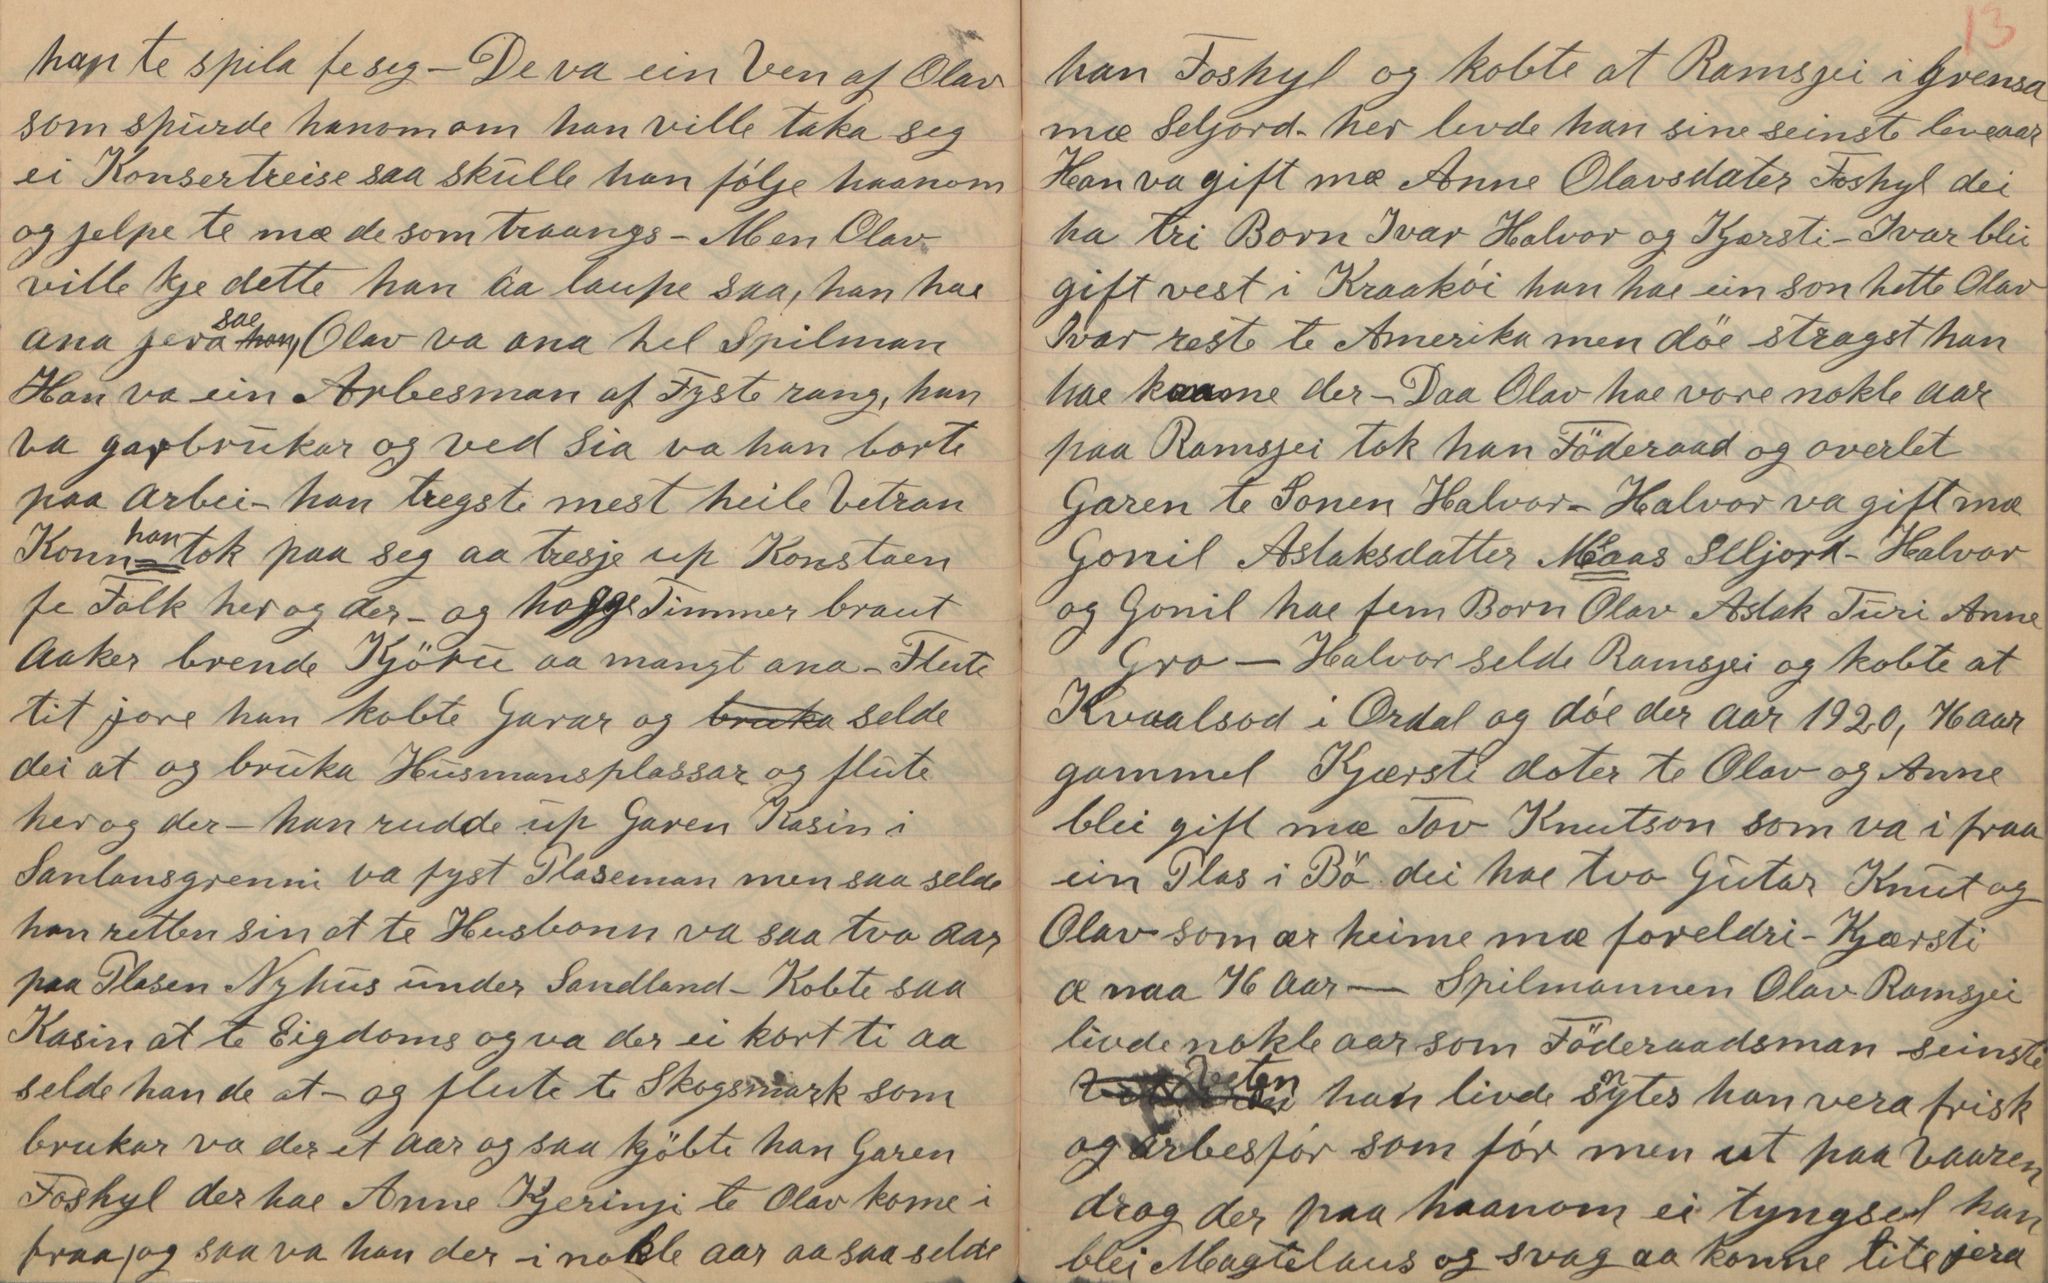 han te spila fe seg – De va ein Ven af Olav
som spurde hanom om han ville taka seg
ei Konsertreise saa skulle han följe haanom
og jelpe te mæ de som traangs – Men Olav
ville kje dette han aa laupe saa, han hae
ana jera sae han, Olav va ana hel Spilman
Han va ein Arbesman af Fyste rang, han
va garbrukar og ved Sia va han borte
paa arbei – han tregste mest heile Vetran
Konn – han tok paa seg aa tresje up Konstaen
fe Folk her og der – og hogge Timmer braut
Aaker brende Kjöru aa mangt ana – Flute
tit jore han kobte Garar og bruka selde
dei at og bruka Husmansplassar og flute
her og der – han rudde up Garen Kasin i
Sanlansgrenni va fyst Plaseman men saa selde
han retten sin at te Husbonn va saa tvo aar
paa Plasen Nyhus under Sandland – Kobte saa
Kasin at te Eigdoms og va der ei kort ti aa
selde han de at – og flute te Skogsmark som
brukar va der et aar og saa kjöbte han Garen
Foshyl der hae Anne Kjeringi te Olav kome i
fraa, og saa va han der i nokle aar aa saa selde
13
han Foshyl og kobte at Ramsjei i Grensa
mæ Seljord – her levde han sine seinste leveaar
Han va gift mæ Anne Olavsdater Foshyl dei
ha tri Born Ivar Halvor og Kjærsti – Ivar blei
gift vest i Kraaköi han hae ein son hette Olav
Ivar reste te Amerika men döe stragst han
hae kaame der – Daa Olav hae vore nokle aar
paa Ramsjei tok han Föderaad og overlet
Garen te Sonen Halvor – Halvor va gift mæ
Gonil Aslaksdatter Maas Slljord – Halvor
og Gonil hae fem Born Olav Aslak Turi Anne
Gro — Halvor selde Ramsjei og kobte at
Kvaalsod i Ordal og döe der aar 1920, 46 aar
gammel Kjærsti doter te Olav og Anne
blei gift mæ Tov Knutson som va i fraa
ein Plas i Bö dei hae tvo Gutar Knut og
Olav som ær heime mæ foreldri – Kjærsti
æ naa 46 aar — Spilmannen Olav Ramsjei
livde nokle aar som Föderaadsman seinste
Veten han livde syntes han vera frisk
og arbesför som för men ut paa Vaaren
drog der paa haanom ei tyngsel han
blei Magtelaus og svag aa konne lite jera